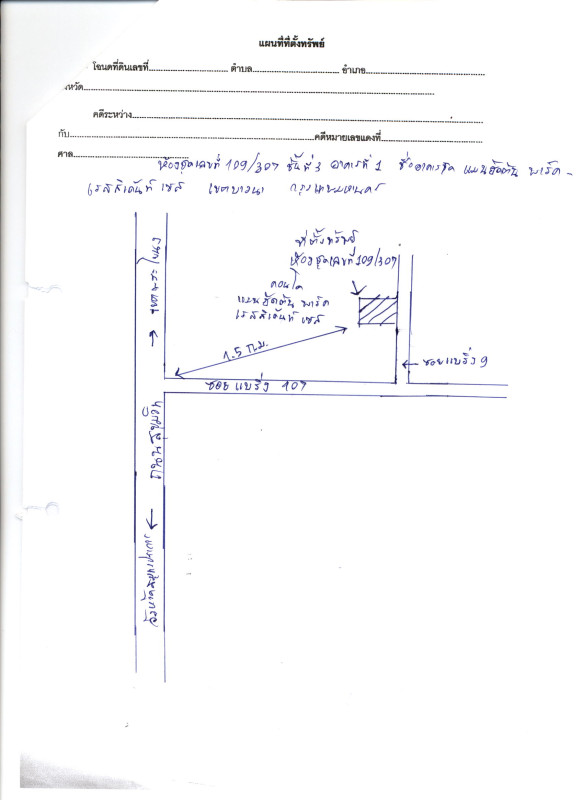 แผนที่ที่ตั้งทรัพย์
โฉนดที่ดินเลขที่ ตำบล อำเภอ
หวัด
คดีระหว่าง
กับ คดีหมายเลขแดงที่
ศาล
ห้องชุดเลขที่ 109/307 ชั้นที่ 3 อาคารที่ 1 ชื่ออาคารชุด แมนฮัตตัน พาร์ค -
เรสสิเด้นท์ เซส เขตบางนา กรุงเทพมหานคร
ที่ตั้งทรัพย์
ห้องชุดเลขที่ 109/307
คอนโด
แมนฮัตตัน พาร์ค
เรสสิเด้นท์ เซส
1.5 ก.ม.
ซอยแบริ่ง 9
ซอยแบริ่ง 107
เขตพระโขนง
ถนนสุขุมวิท
จังหวัดสมุทรปราการ